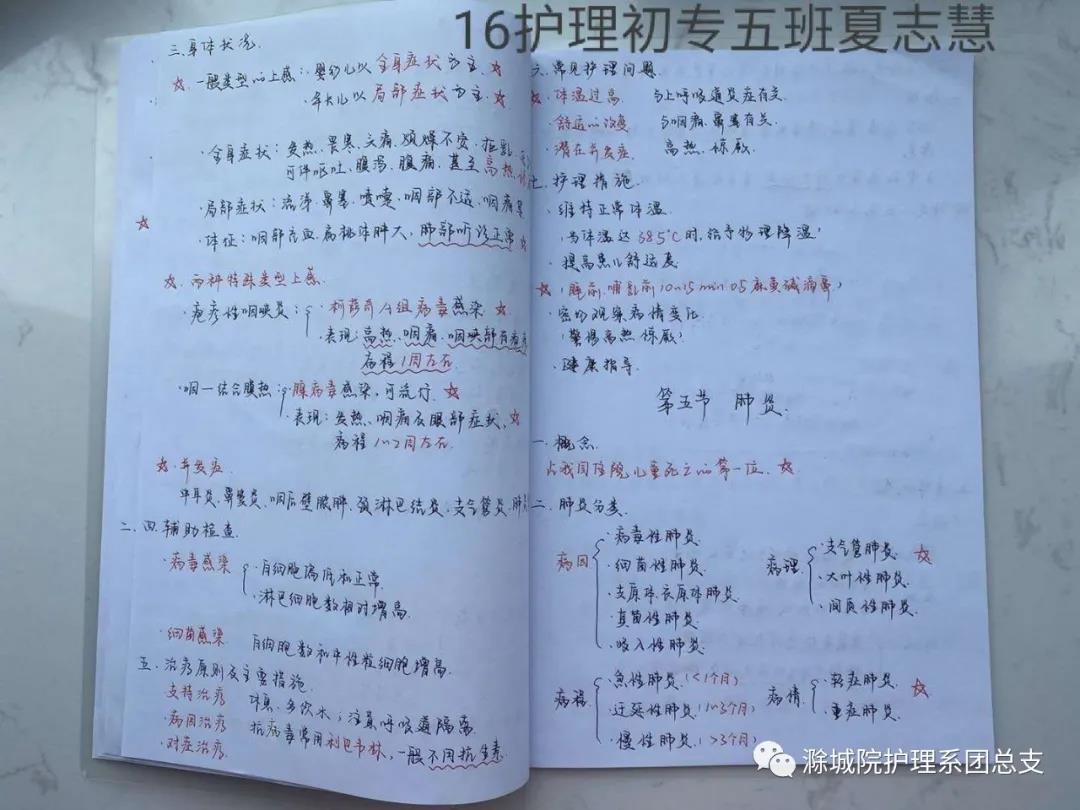 16护理初专五班夏志慧
三.身体状况.
☆ 一般类型的上感: 婴幼儿以全身症状为主 ☆
年长儿以局部症状为主 ☆
·全身症状: 发热、畏寒、头痛、烦燥不安、拒乳、
可伴呕吐、腹泻、腹痛、甚至高热
·局部症状: 流涕、鼻塞、喷嚏、咽部不适、咽痛
☆ ·体征: 咽部充血、扁桃体肿大, 肺部听诊正常 ☆
☆ 两种特殊类型上感
·疱疹性咽峡炎: 柯萨奇A组病毒感染 ☆
表现: 高热、咽痛、咽峡部有疱疹
病程1周左右
·咽—结合膜热: 腺病毒感染, 可流行 ☆
·表现: 发热、咽痛及眼部症状, ☆
病程1~2周左右
☆ 并发症
中耳炎、鼻窦炎、咽后壁脓肿、颈淋巴结炎、支气管炎、肺
二、四.辅助检查
·病毒感染 ·白细胞偏低和正常.
·淋巴细胞数相对增高
·细菌感染 白细胞数和中性粒细胞增高.
五、治疗原则及主要措施.
·支持治疗 休息、多饮水; 注意呼吸道隔离
·病因治疗 抗病毒常用利巴韦林, 一般不用抗生素.
·对症治疗.
六.常见护理问题
☆ ·体温过高 与上呼吸道炎症有关
·舒适的改变 与咽痛、鼻塞有关
·潜在并发症. 高热、惊厥.
七.护理措施.
·维持正常体温
(当体温达38.5℃时, 给予物理降温)
·提高患儿舒适度
☆ (睡前、哺乳前10~15min 0.5麻黄碱滴鼻)
·密切观察病情变化
(警惕高热惊厥)
·健康指导.
第五节 肺炎.
一.概念.
占我国住院儿童死亡的第一位. ☆
二.肺炎分类
病因 ·病毒性肺炎
·细菌性肺炎
·支原体、衣原体肺炎
·真菌性肺炎
·吸入性肺炎
病理 ·支气管肺炎 ☆
·大叶性肺炎
·间质性肺炎
病程 ·急性肺炎 (<1个月)
·迁延性肺炎 (1~3个月)
·慢性肺炎 (>3个月)
病情 ·轻症肺炎 ☆
·重症肺炎
滁城院护理系团总支